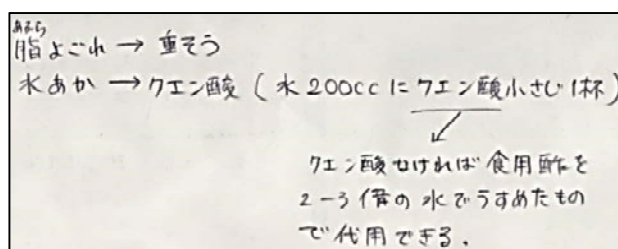 あぶら
脂よごれ → 重そう
水あか → クエン酸 ( 水 200cc に クエン酸小さじ 1杯 )
クエン酸なければ 食用酢を
2-3 倍の 水で うすめたもの
で 代用できる.